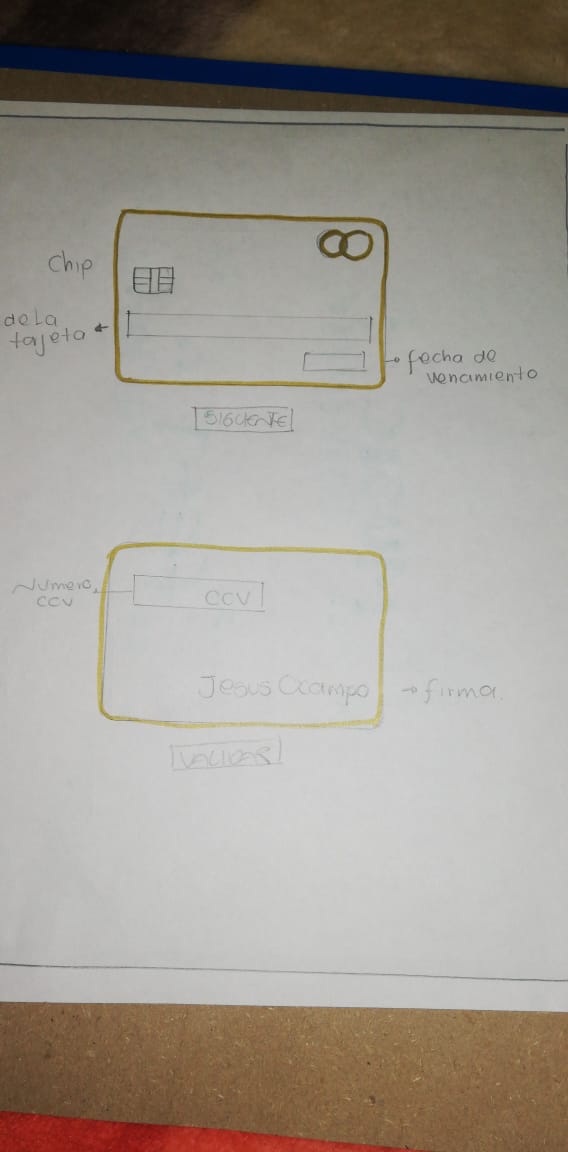 Chip
de La
tajeta
fecha de
venamiento
SIGUIENTE
Numero
CCV
CCV
Jesus Ocampo
firma.
VALIDAR